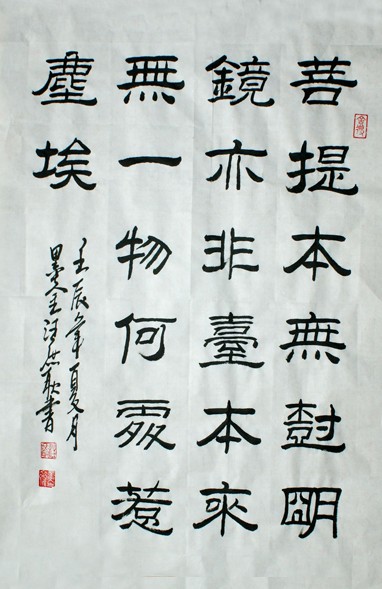 菩提本無樹明
鏡亦非臺本來
無一物何處惹
塵埃
壬辰年夏月
墨書